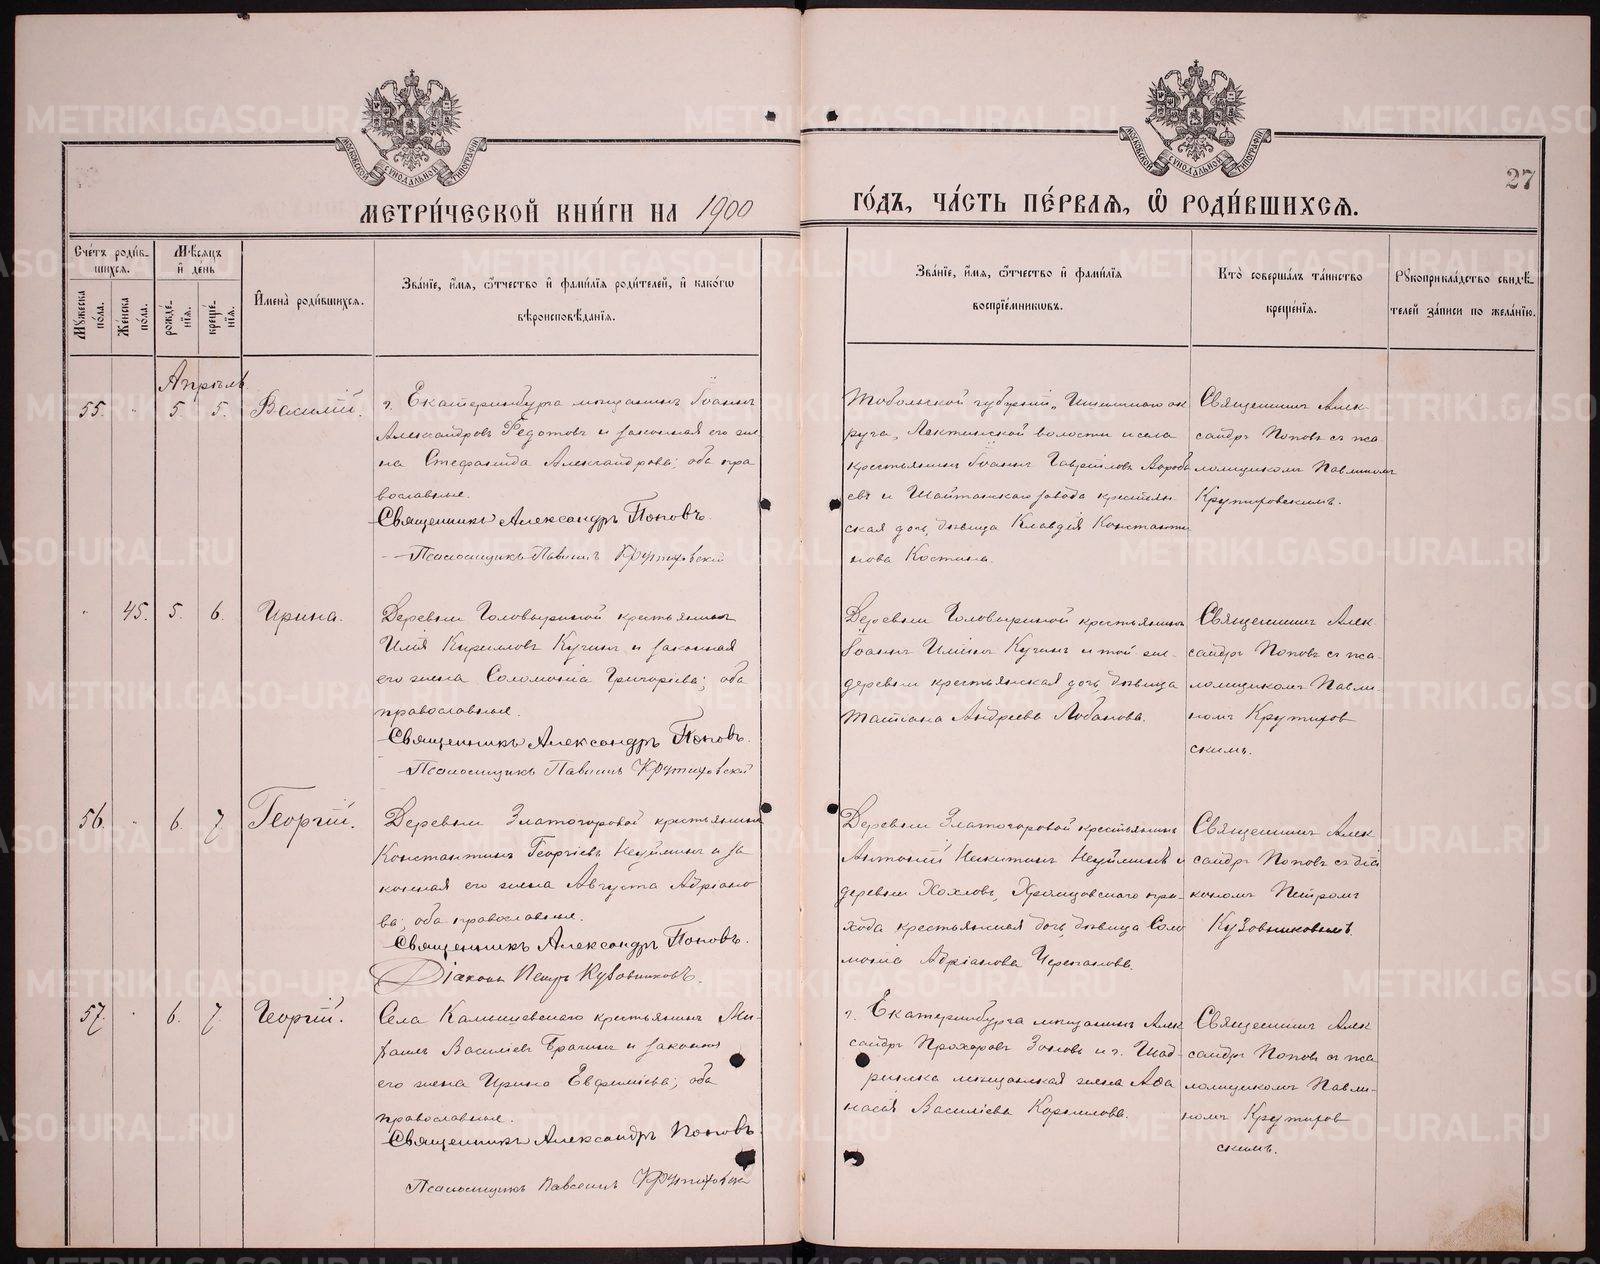 МЕТРИ́ЧЕСКОЙ КНИ́ГИ НА 1900
ГО́ДЪ, ЧА́СТЬ ПЕ́РВАЯ, Ѽ РОДИ́ВШИХСЯ.
27
МОСКОВСКОЙ СѴНОДАЛЬНОЙ ТИПОГРАФІИ
МОСКОВСКОЙ СѴНОДАЛЬНОЙ ТИПОГРАФІИ
Сче́тъ роди́в-
шихся.
Мѣ́сяцъ
и҆ де́нь
Мꙋ́жеска по́ла.
Же́нска по́ла.
рожде́-
нїя.
креще́-
нїя.
И҆мена̀ роди́вшихся.
Зва́нїе, и҆́мя, ѻ҆́тчество и҆ фами́лїя роди́телей, и҆ како́гѡ
вѣроисповѣ́данїя.
Зва́нїе, и҆́мя, ѻ҆́тчество и҆ фами́лїя
воспрїе́мникѡвъ.
Кто̀ соверша́лъ та́инство
креще́нїя.
Рꙋкоприкла́дство свидѣ́-
телей за́писи по жела́нїю.
Апрѣль
55. " 5 5. Василій.
г. Екатеринбурга мѣщанинъ Іоаннъ
Александровъ Федотовъ и законная его же-
на Стефанида Александрова; оба пра
вославные.
Священникъ Александръ Поповъ.
Псаломщикъ Павлинъ Крутиховскій
Тобольской губерніи, Ишимскаго ок
руга, волости и села
крестьянинъ Іоаннъ Гавріиловъ
евъ и Шайтанскаго завода крестьян
ская дочь, дѣвица Клавдія Константи
нова Костина.
Священникъ Алек-
сандръ Поповъ съ пса
ломщикомъ Павлиномъ
Крутиховскимъ.
" 45. 5. 6. Ирина.
Деревни Головыриной крестьянинъ
Илія Кирилловъ Кузинъ и законная
его жена Соломонія Григорьева; оба
православные.
Священникъ Александръ Поповъ.
Псаломщикъ Павлинъ Крутиховскій
Деревни Головыриной крестьянинъ
Іоаннъ Иліинъ Кузинъ и той же
деревни крестьянская дочь, дѣвица
Татіана Андреева Лобанова.
Священникъ Алек-
сандръ Поповъ съ пса-
ломщикомъ Павли-
номъ Крутихов
скимъ.
56. " 6. 7. Георгій.
Деревни Златогоровой крестьянинъ
Константинъ Георгіевъ Неуйминъ и за
конная его жена Августа Адріано
ва; оба православные.
Священникъ Александръ Поповъ.
Діаконъ Петръ Кузовниковъ.
Деревни Златогоровой крестьянинъ
Антоній Никитинъ Неуйминъ и
деревни Хохловъ, Храмцовскаго при-
хода крестьянская дочь, дѣвица Соло
монія Адріанова Черепанова.
Священникъ Алек
сандръ Поповъ съ діа
кономъ Петромъ
Кузовниковымъ.
57. " 6. 7. Георгій.
Села Камышевскаго крестьянинъ Ми-
хаилъ Василіевъ Брагинъ и законная
его жена Ирина Евфиміева; оба
православные.
Священникъ Александръ Поповъ.
Псаломщикъ Павлинъ Крутиховскій
г. Екатеринбурга мѣщанинъ Алек
сандръ Прохоровъ Зоновъ и г. Шад-
ринска мѣщанская жена Аѳа
насія Василіева Корнилова.
Священникъ Алек
сандръ Поповъ съ пса
ломщикомъ Павли-
номъ Крутихов
скимъ.
METRIKI.GASO-URAL.RU